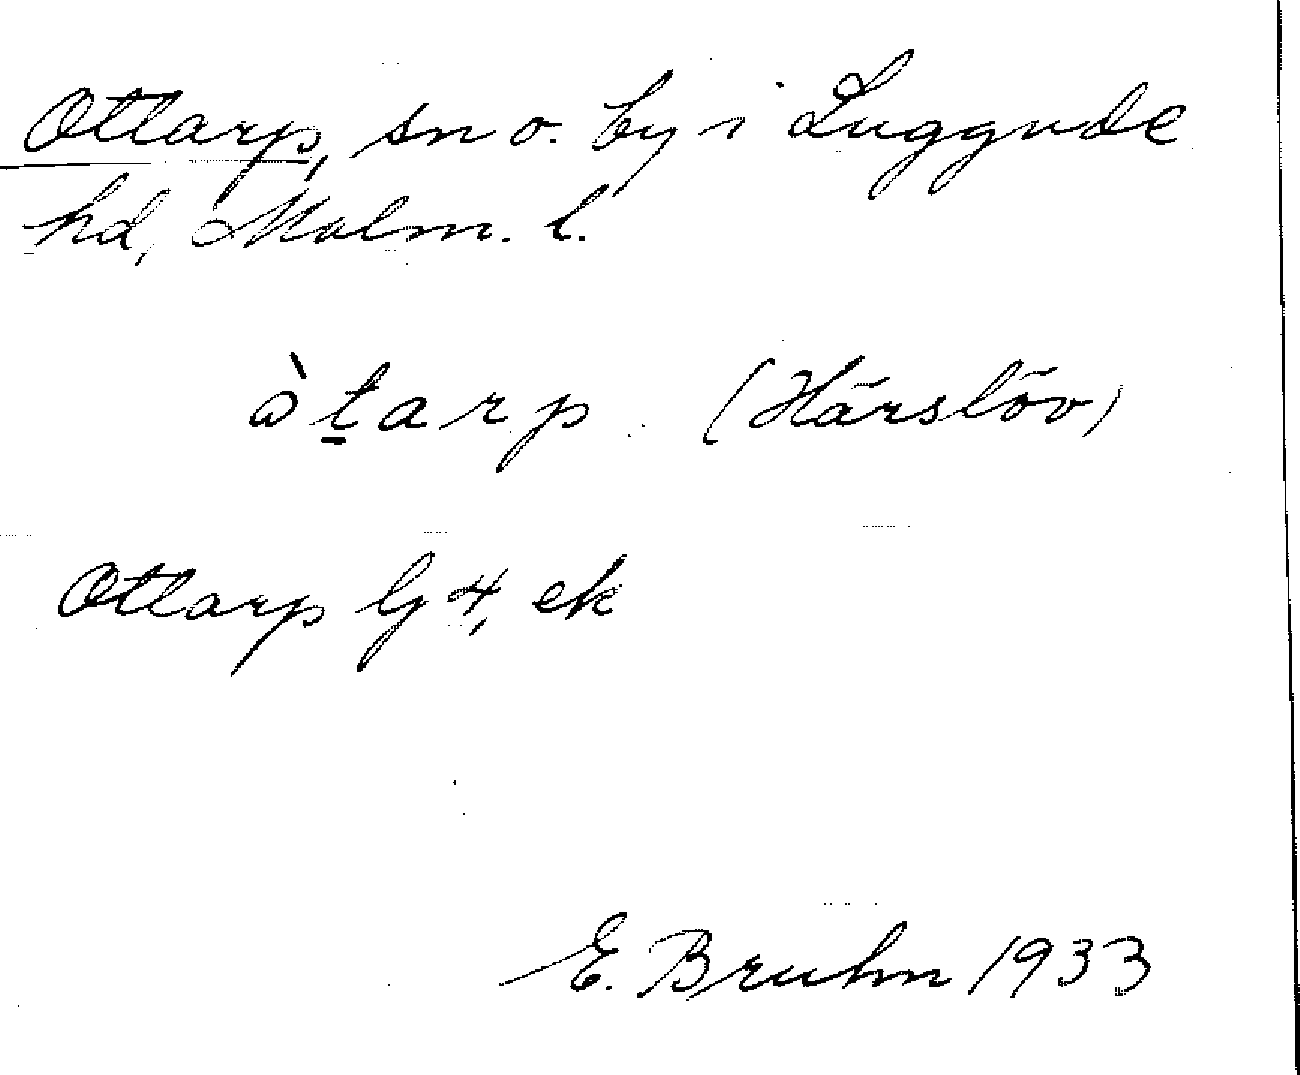 Ottarp, sn o. by i Luggude
hd, Malm. l.
ὼt̠arp. (Härslöv)
Ottarp Gj 4, ek
E. Bruhn 1933